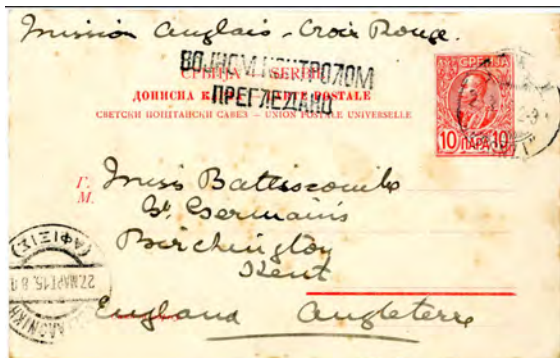 Mission Anglais - Croix Rouge.
ВОЈНОМ КОНТРОЛОМ
ПРЕГЛЕДАНО
СРБИЈА - SERBIE
ДОПИСНА CARTE POSTALE
СВЕТСКИ ПОШТАНСКИ САВЕЗ – UNION POSTALE UNIVERSELLE
СРБИЈА
10 ПАРА 10
Г. Miss Battiscombe
М. St Germains
Birchington
Kent
England Angleterre
(ΑΦΙΞΙΣ)
27.ΜΑΡΤ.15. 8